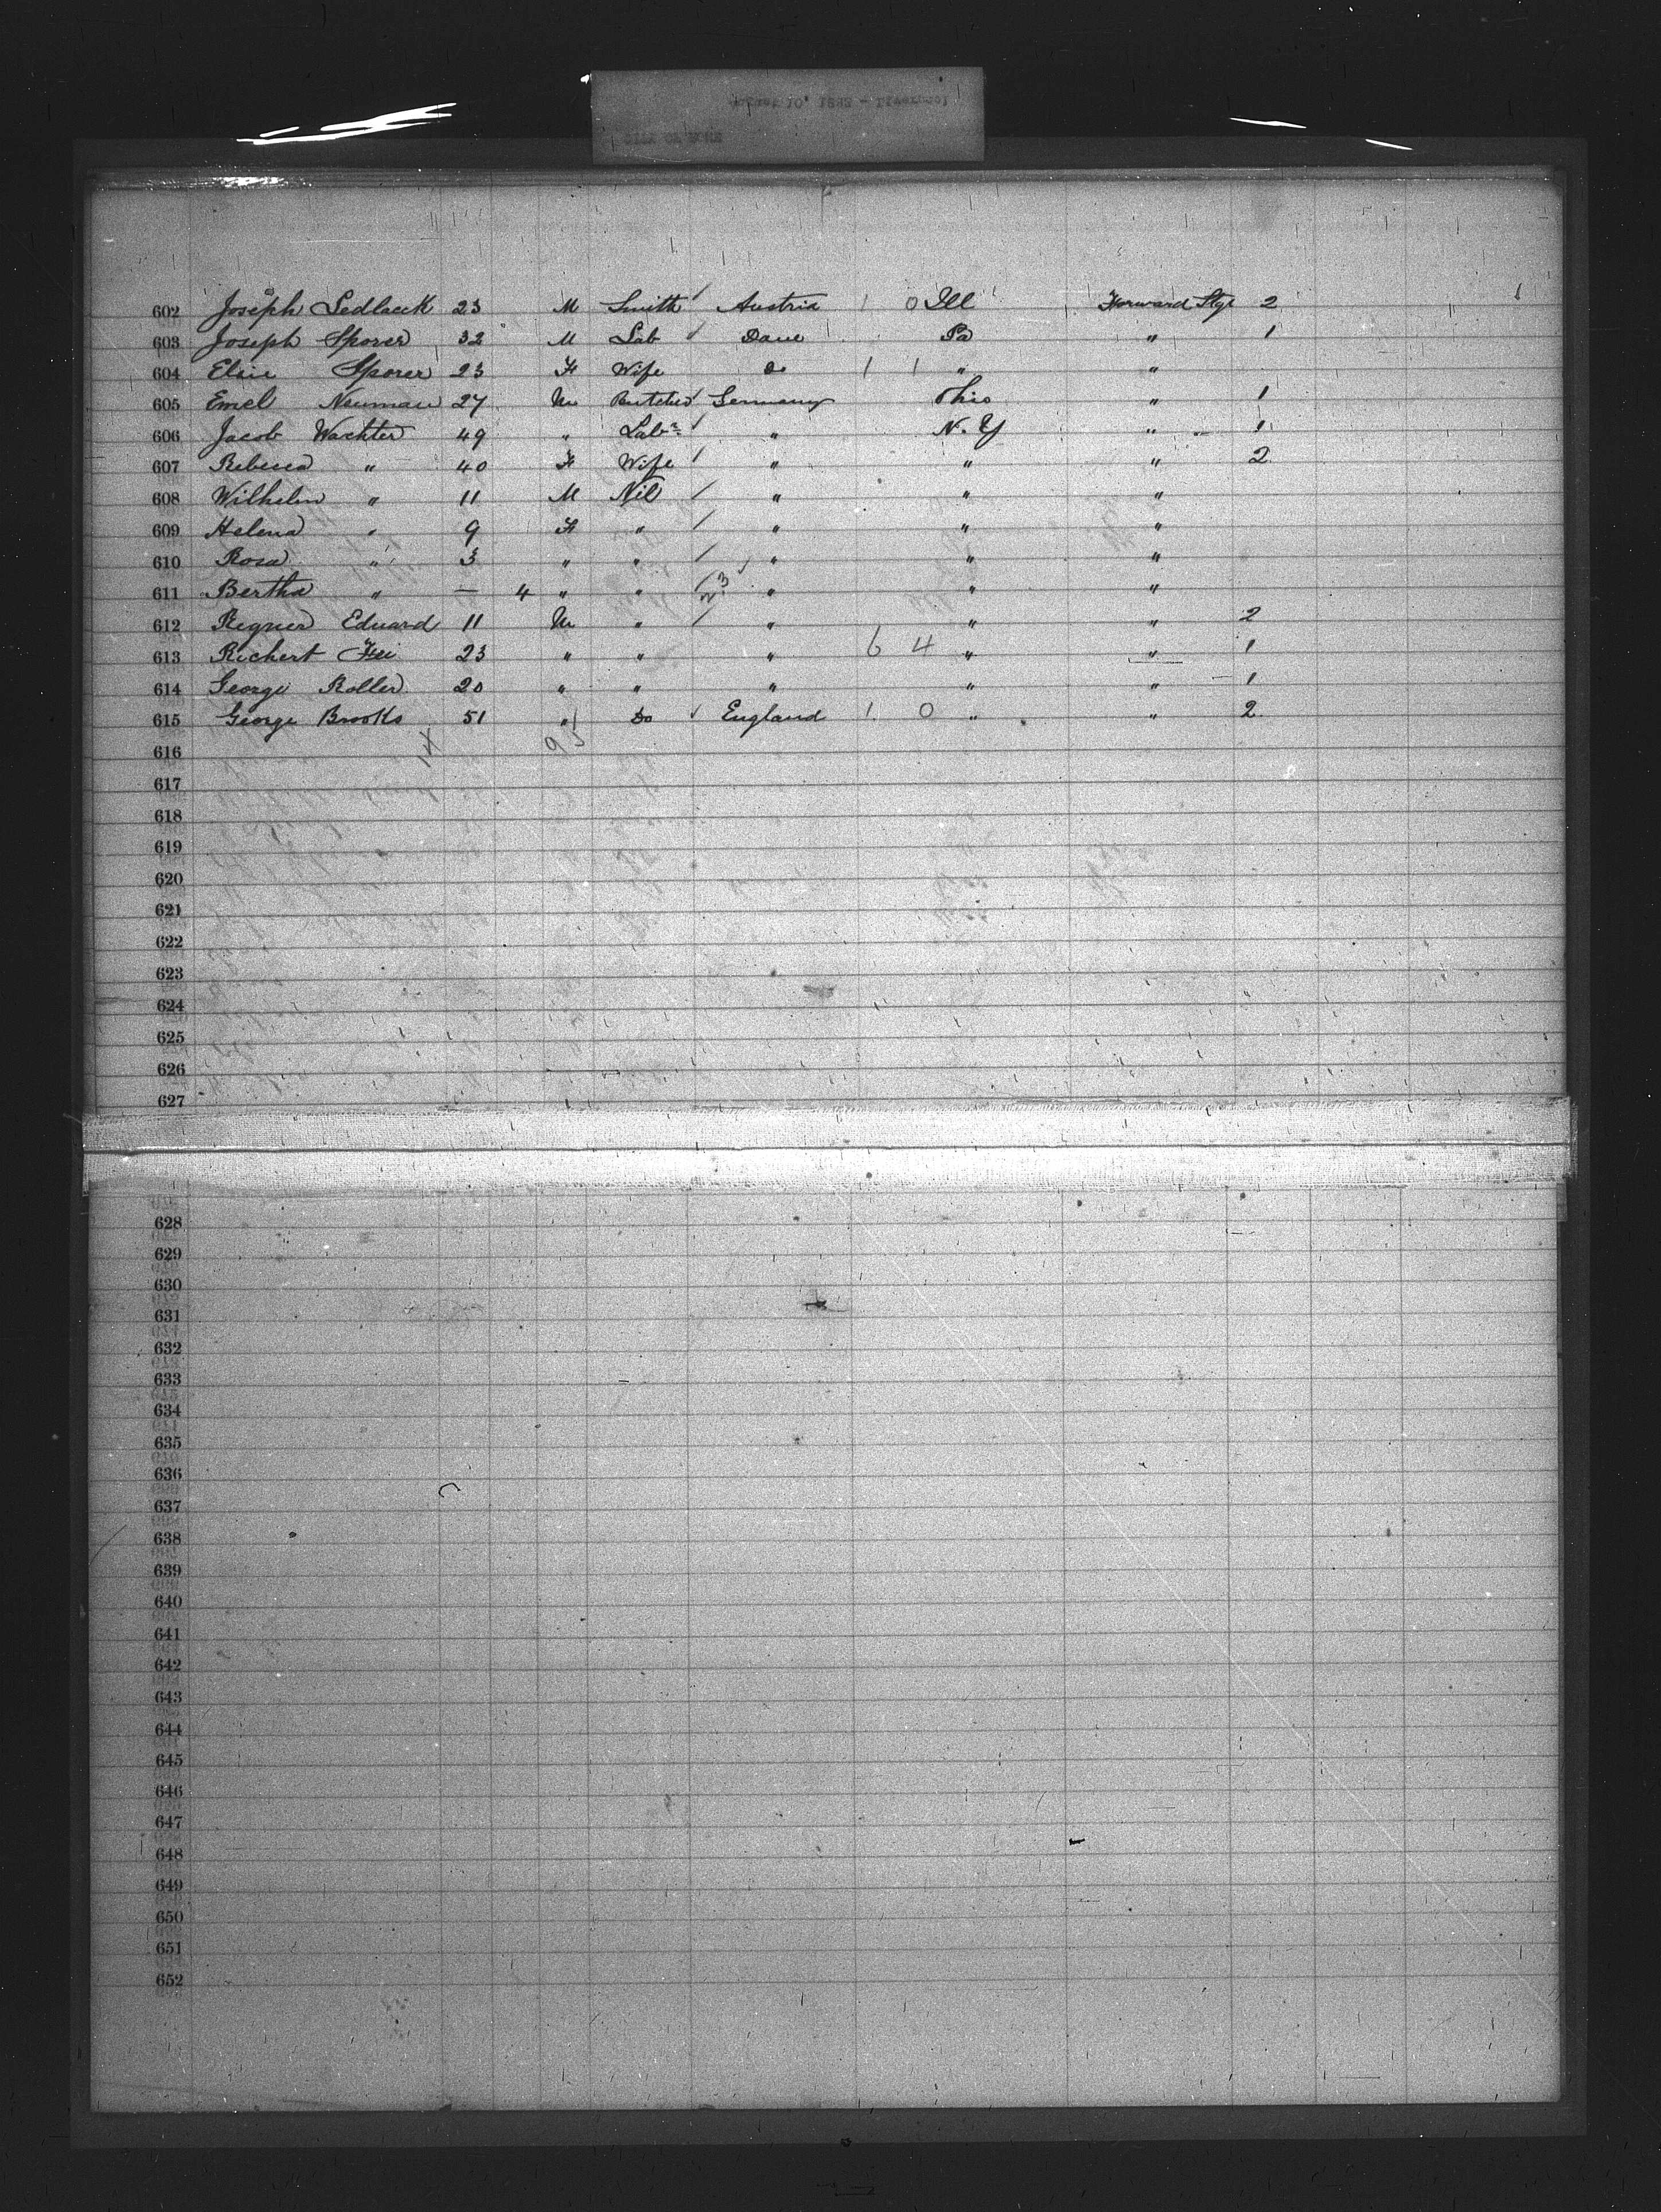 602 Joseph Sedlacek 23 M Smith / Austria 1 0 Ill Forward Stge 2
603 Joseph Sporer 32 M Lab / Dane Pa " 1
604 Elsie Sporer 23 F Wife Do 1 1 " "
605 Emel Neuman 27 M Butcher / Germany Ohio " 1
606 Jacob Wachter 49 " Labr / " N.Y " 1
607 Rebecca " 40 F Wife / " " " 2
608 Wilhelm " 11 M Nil / " " "
609 Helena " 9 F " / " " "
610 Rosa " 3 " " / " " "
611 Bertha " — 4 " " " " "
612 Regner Eduard 11 M " / " " " 2
613 Richert 23 " " " 6 4 " " 1
614 George Roller 20 " " " " " 1
615 George Brooks 51 " Do / England 1 0 " " 2
14 9 5
616
617
618
619
620
621
622
623
624
625
626
627
628
629
630
631
632
633
634
635
636
637
638
639
640
641
642
643
644
645
646
647
648
649
650
651
652